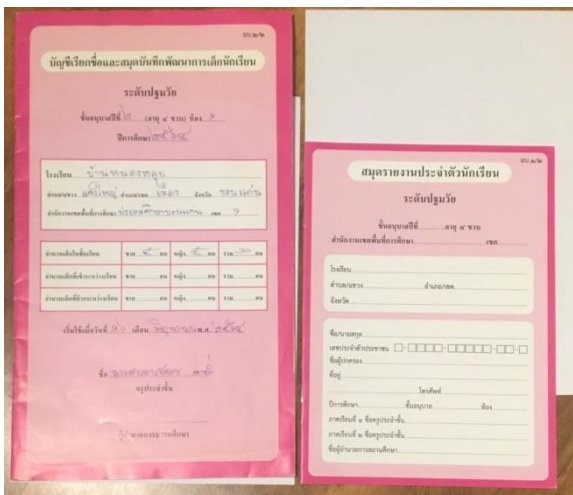 อบ.๒/๒
บัญชีเรียกชื่อและสมุดบันทึกพัฒนาการเด็กนักเรียน
ระดับปฐมวัย
ชั้นอนุบาลปีที่ ๒ (อายุ ๔ ขวบ) ห้อง
ปีการศึกษา ๒๕๖๔
โรงเรียน บ้านหนอง
ตำบล/แขวง อำเภอ/เขต เมือง จังหวัด ขอนแก่น
สำนักงานเขตพื้นที่การศึกษา ประถมศึกษาขอนแก่น เขต ๑
จำนวนเด็กในชั้นเรียน ชาย ๕ คน หญิง ๕ คน รวม ๑๐ คน
จำนวนเด็กที่เข้าระหว่างเรียน ชาย คน หญิง คน รวม คน
จำนวนเด็กที่ย้ายระหว่างเรียน ชาย คน หญิง คน รวม คน
เริ่มใช้เมื่อวันที่ เดือน พ.ศ. ๒๕๖๔
ชื่อ
ครูประจำชั้น
ผู้อำนวยการสถานศึกษา
อบ.๒/๒
สมุดรายงานประจำตัวนักเรียน
ระดับปฐมวัย
ชั้นอนุบาลปีที่ อายุ ๔ ขวบ
สำนักงานเขตพื้นที่การศึกษา เขต
โรงเรียน
ตำบล/แขวง อำเภอ/เขต
จังหวัด
ชื่อ/นามสกุล
เลขประจำตัวประชาชน
ชื่อผู้ปกครอง
ที่อยู่
โทรศัพท์
ปีการศึกษา ชั้นอนุบาล ห้อง
ภาคเรียนที่ ๑ ชื่อครูประจำชั้น
ภาคเรียนที่ ๒ ชื่อครูประจำชั้น
ชื่อผู้อำนวยการสถานศึกษา